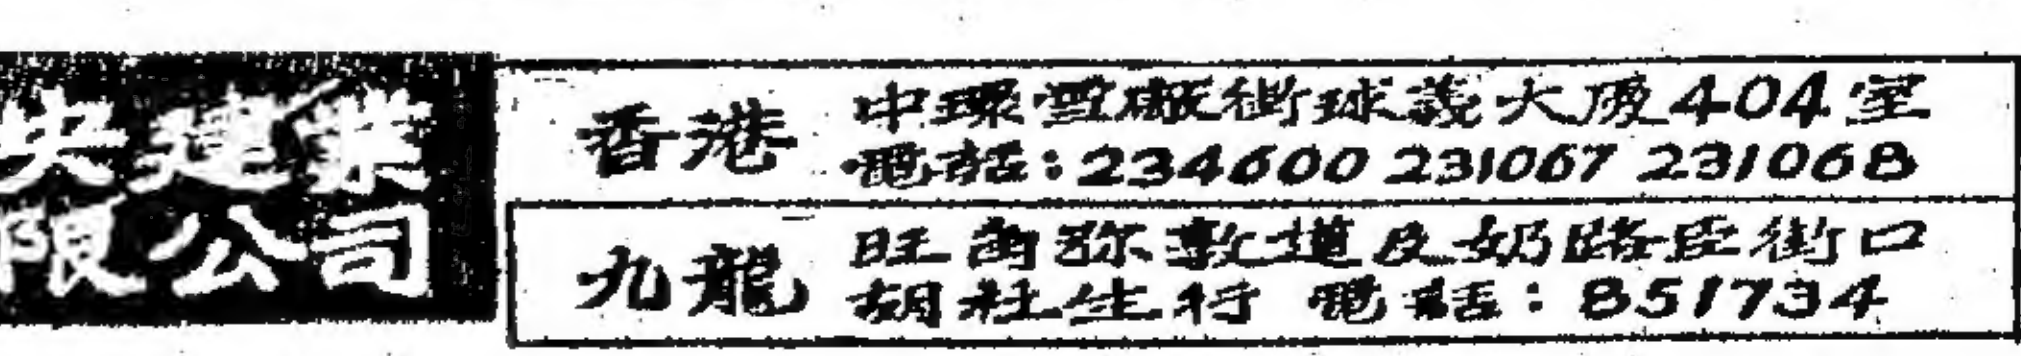 央建業
限公司
香港
中環雪廠街球義大廈404室
電話：234600 231067 231068
九龍
旺角弥敦道及奶路臣街口
胡社生行 電話：851734